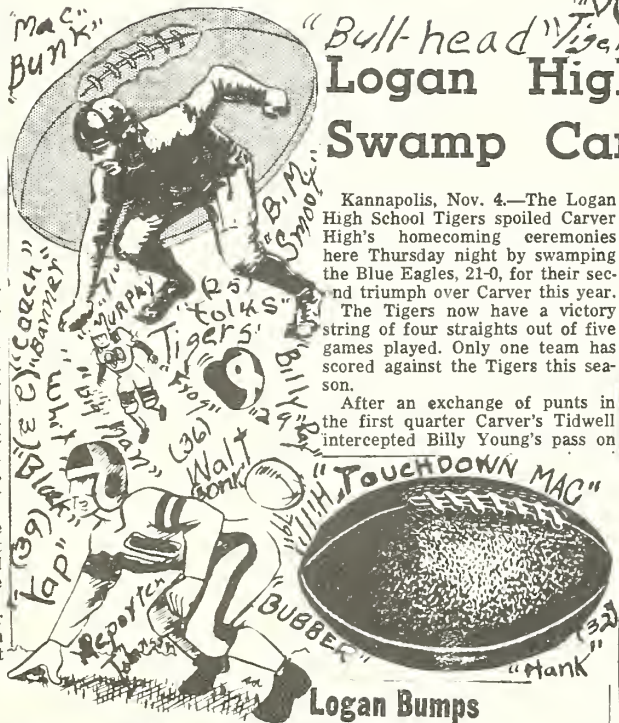 "Mac"
BUNK"
"Bull-head"
Logan Hig
Swamp Ca
"B.M.
Smoot"
Kannapolis, Nov. 4.—The Logan
High School Tigers spoiled Carver
High's homecoming ceremonies
here Thursday night by swamping
the Blue Eagles, 21-0, for their sec-
nd triumph over Carver this year.
The Tigers now have a victory
string of four straights out of five
games played. Only one team has
scored against the Tigers this sea-
son.
After an exchange of punts in
the first quarter Carver's Tidwell
intercepted Billy Young's pass on
"Coach"
MURPHY
(25)
"folks"
Tigers
Billy
Ray
"29"
"Frog"
"Big Man"
Whit
Black"
(39)
Tap"
(36)
Walt
"TOUCHDOWN MAC"
"BUBBER"
Reporter
(32)
"Hank"
Logan Bumps